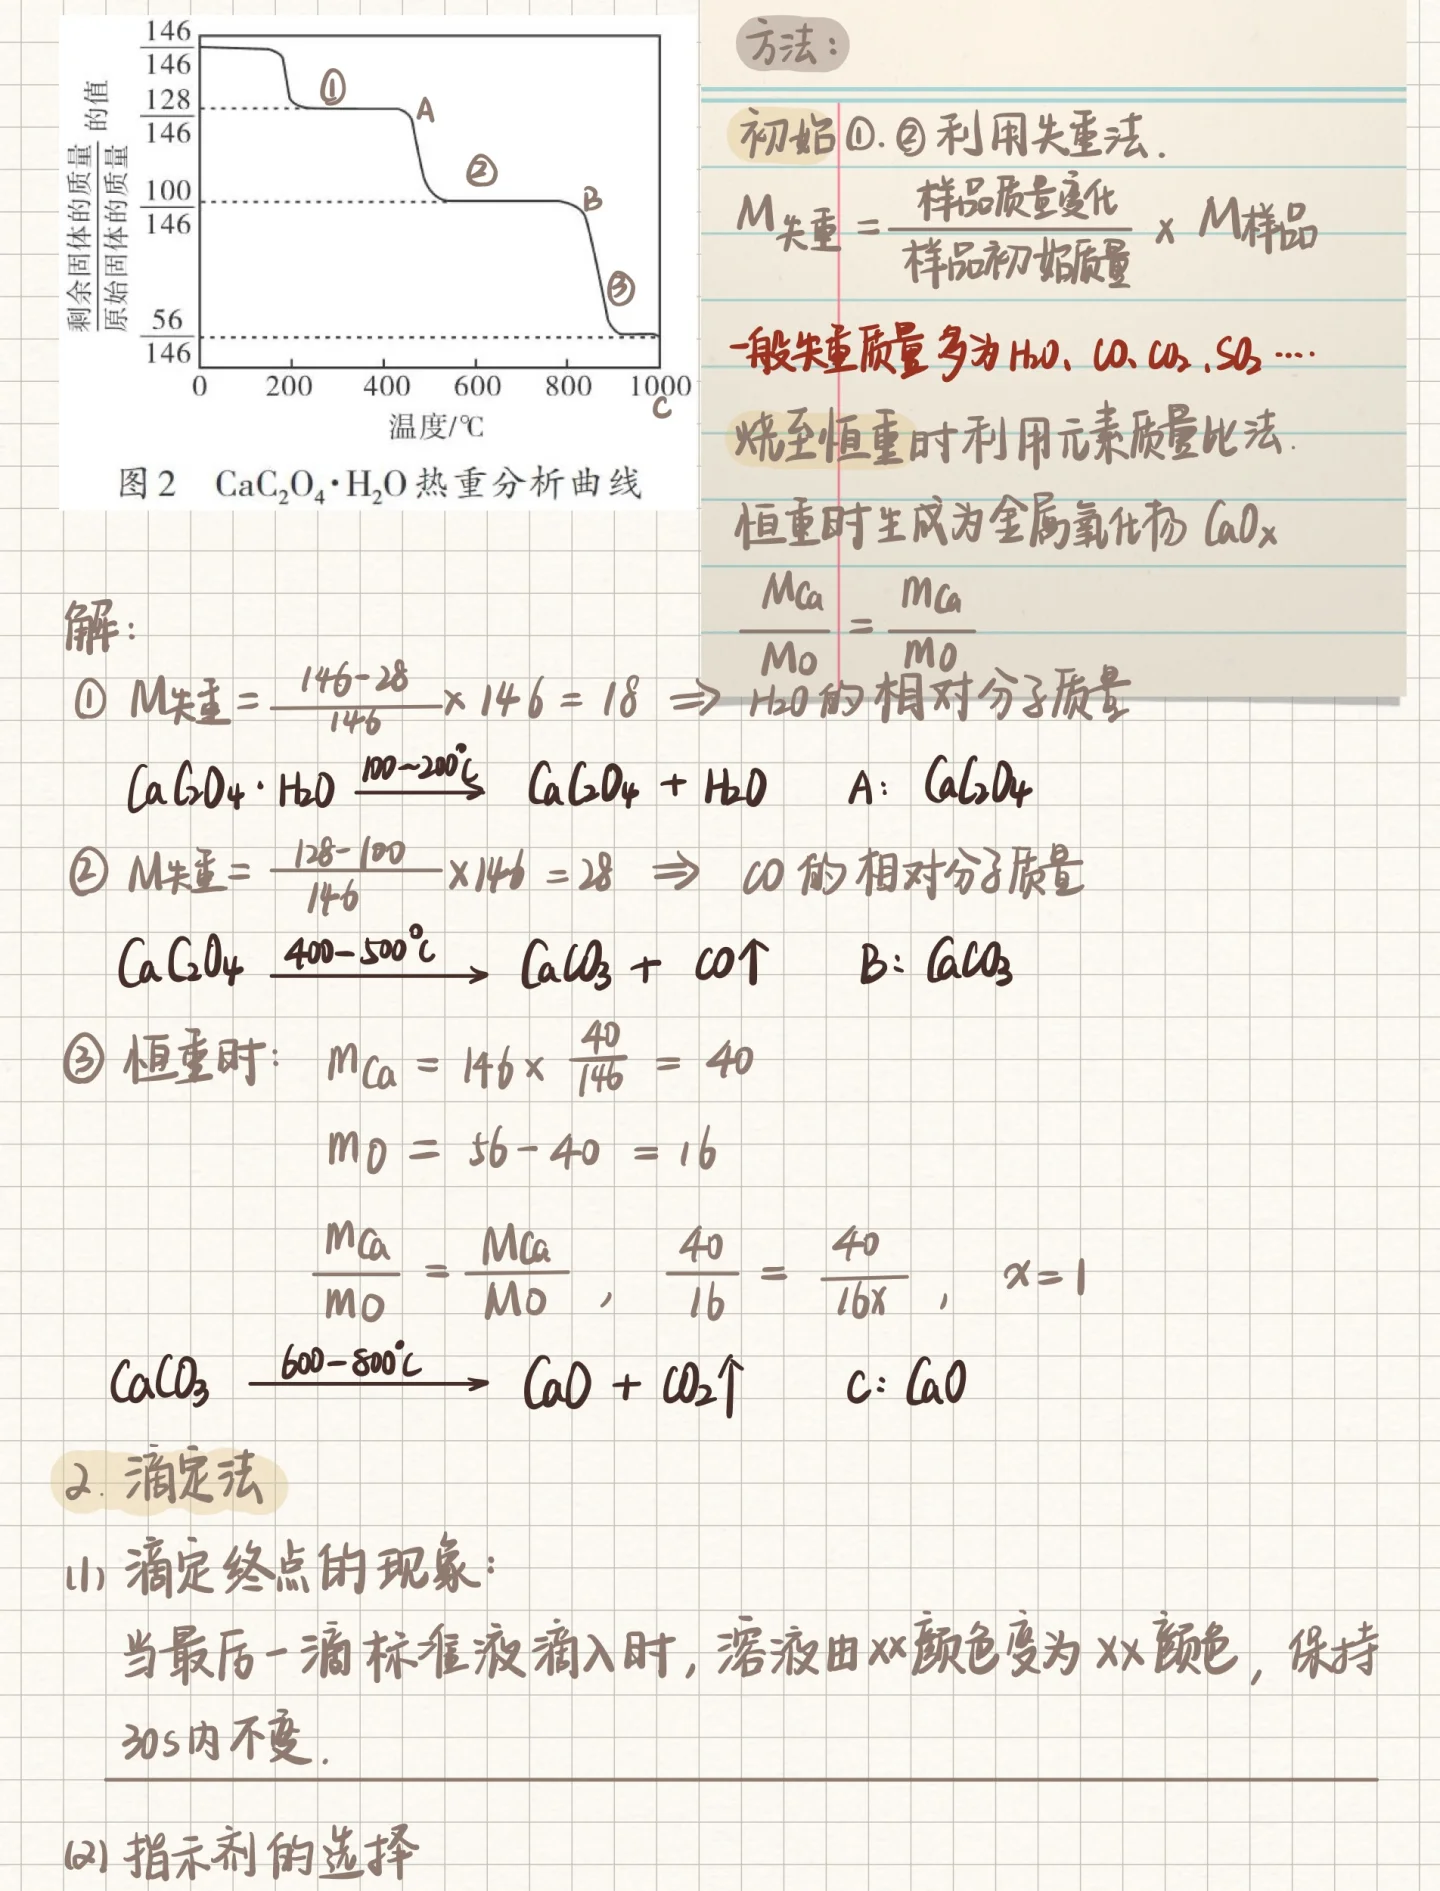 146/146
128/146
100/146
56/146
剩余固体的质量/原始固体的质量 的值
① A
② B
③
0 200 400 600 800 1000
C
温度/℃
图2 CaC₂O₄·H₂O热重分析曲线
方法:
初始①.②利用失重法.
M失重 = 样品质量变化/样品初始质量 × M样品
一般失重质量多为H₂O、CO、CO₂、SO₂ ····
烧至恒重时利用元素质量比法.
恒重时生成为金属氧化物 CaOx
MCa/MO = mCa/mO
解:
① M失重 = 146-28/146 × 146 = 18 ⇒ H₂O的相对分子质量
CaC₂O₄·H₂O 100~200℃→ CaC₂O₄ + H₂O A: CaC₂O₄
② M失重 = 128-100/146 ×146 = 28 ⇒ CO的相对分子质量
CaC₂O₄ 400-500℃→ CaCO₃ + CO↑ B: CaCO₃
③ 恒重时: mCa = 146× 40/146 = 40
mO = 56-40 = 16
mCa/mO = MCa/MO , 40/16 = 40/16x , x=1
CaCO₃ 600-800℃→ CaO + CO₂↑ C: CaO
2. 滴定法
(1) 滴定终点的现象:
当最后一滴标准液滴入时, 溶液由xx颜色变为xx颜色, 保持
30s内不变.
(2) 指示剂的选择